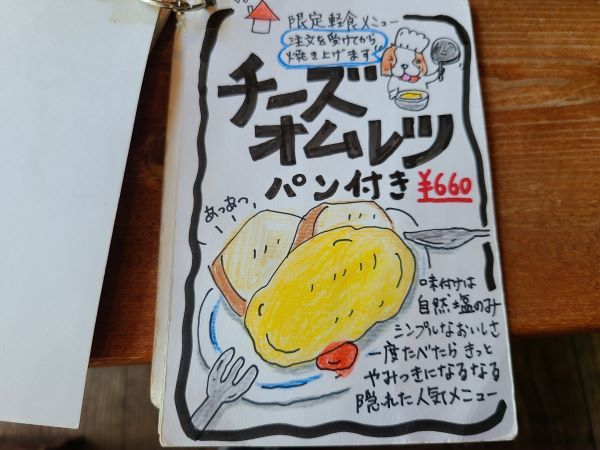 限定軽食メニュー
注文を受けてから
焼き上げます
チーズ
オムレツ
パン付き ¥660
あつあつ
味付けは
自然塩のみ
シンプルなおいしさ
一度たべたら きっと
やみつきになるなる
隠れた人気メニュー